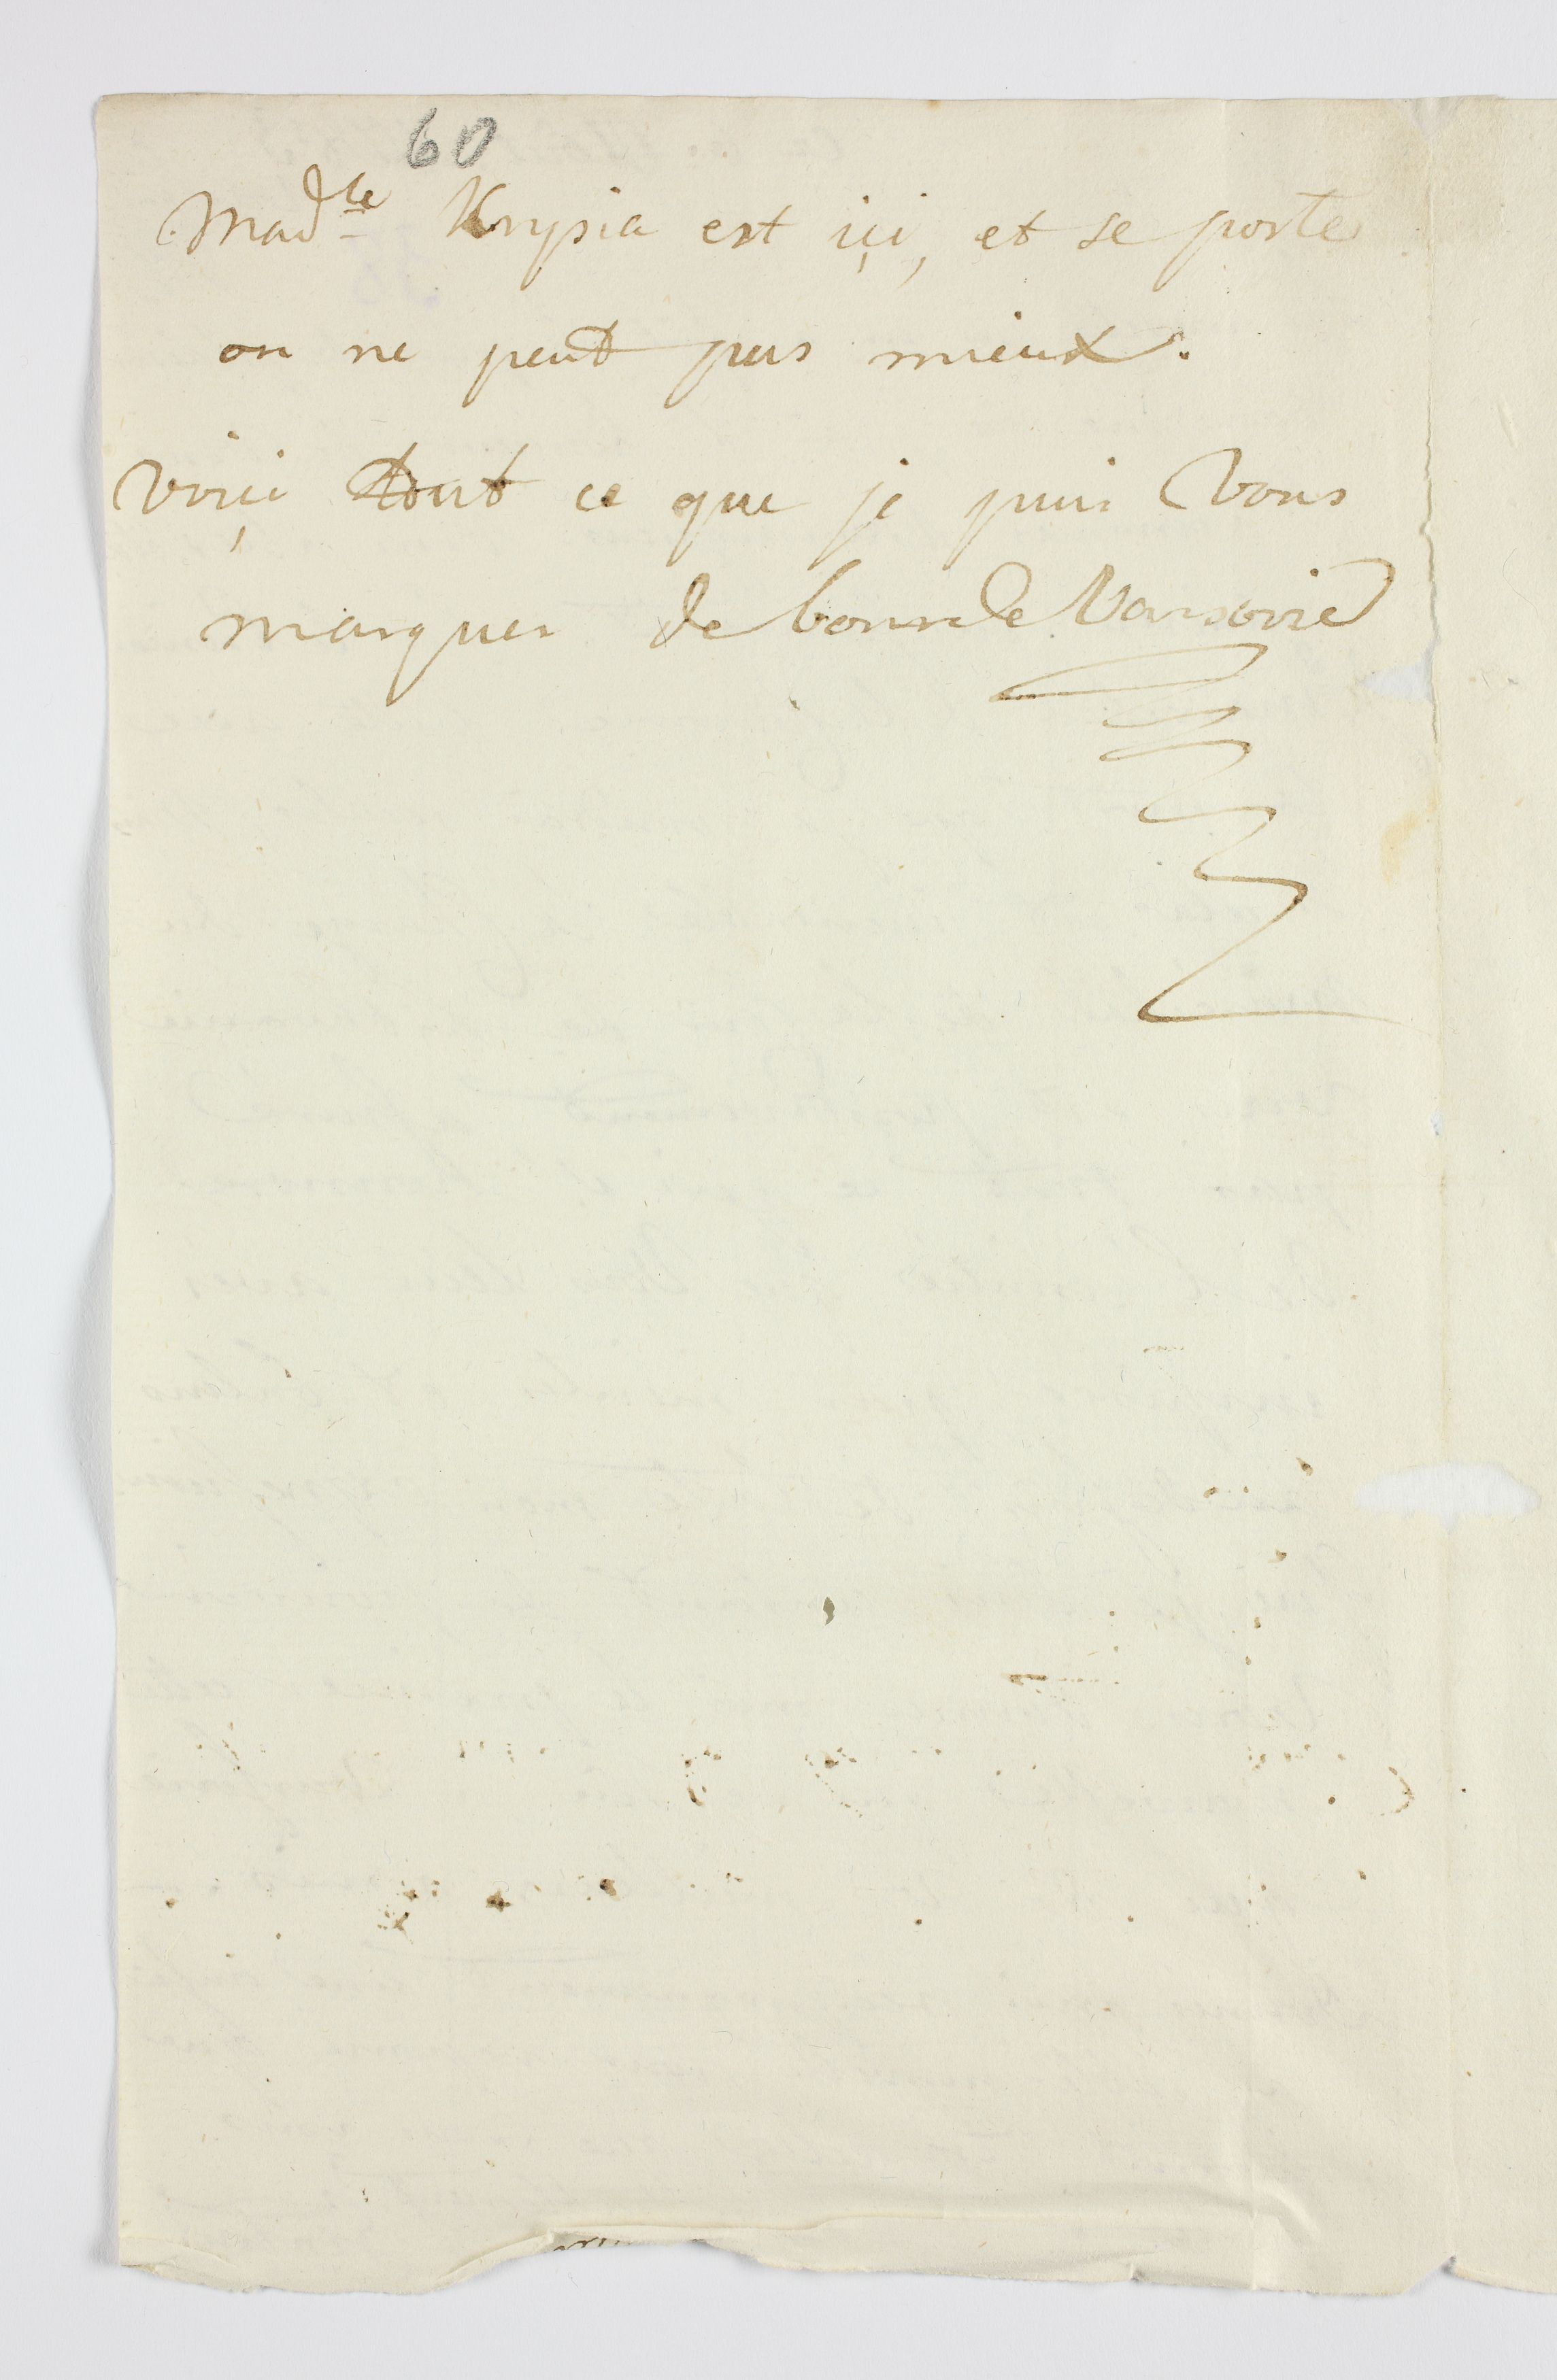 60
Mad.le Krysia est içi, et se porte
on ne peut pas mieux.
Voiçi tout ce que je puis Vous
marquer de bon de Varsovie